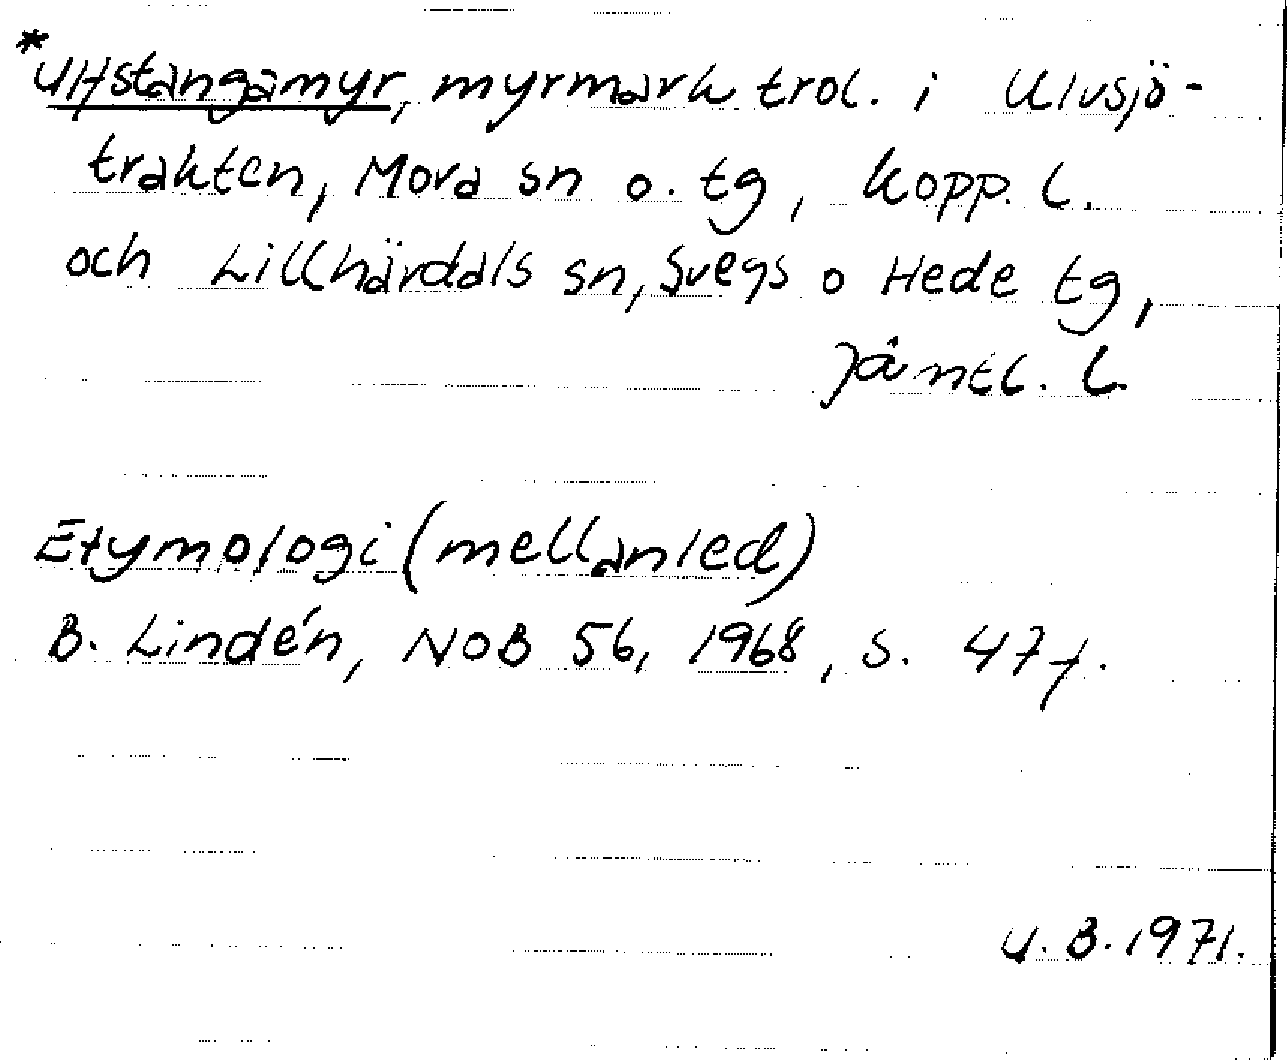 *Ulfstangamyr, myrmark trol. i Ulvsjö-
trakten, Mora sn o. tg, Kopp. l.
och Lillhärdals sn, Svegs o Hede tg,
Jämtl. l.
Etymologi (mellanled)
B. Lindén, NOB 56, 1968, s. 47f.
U.B.1971.